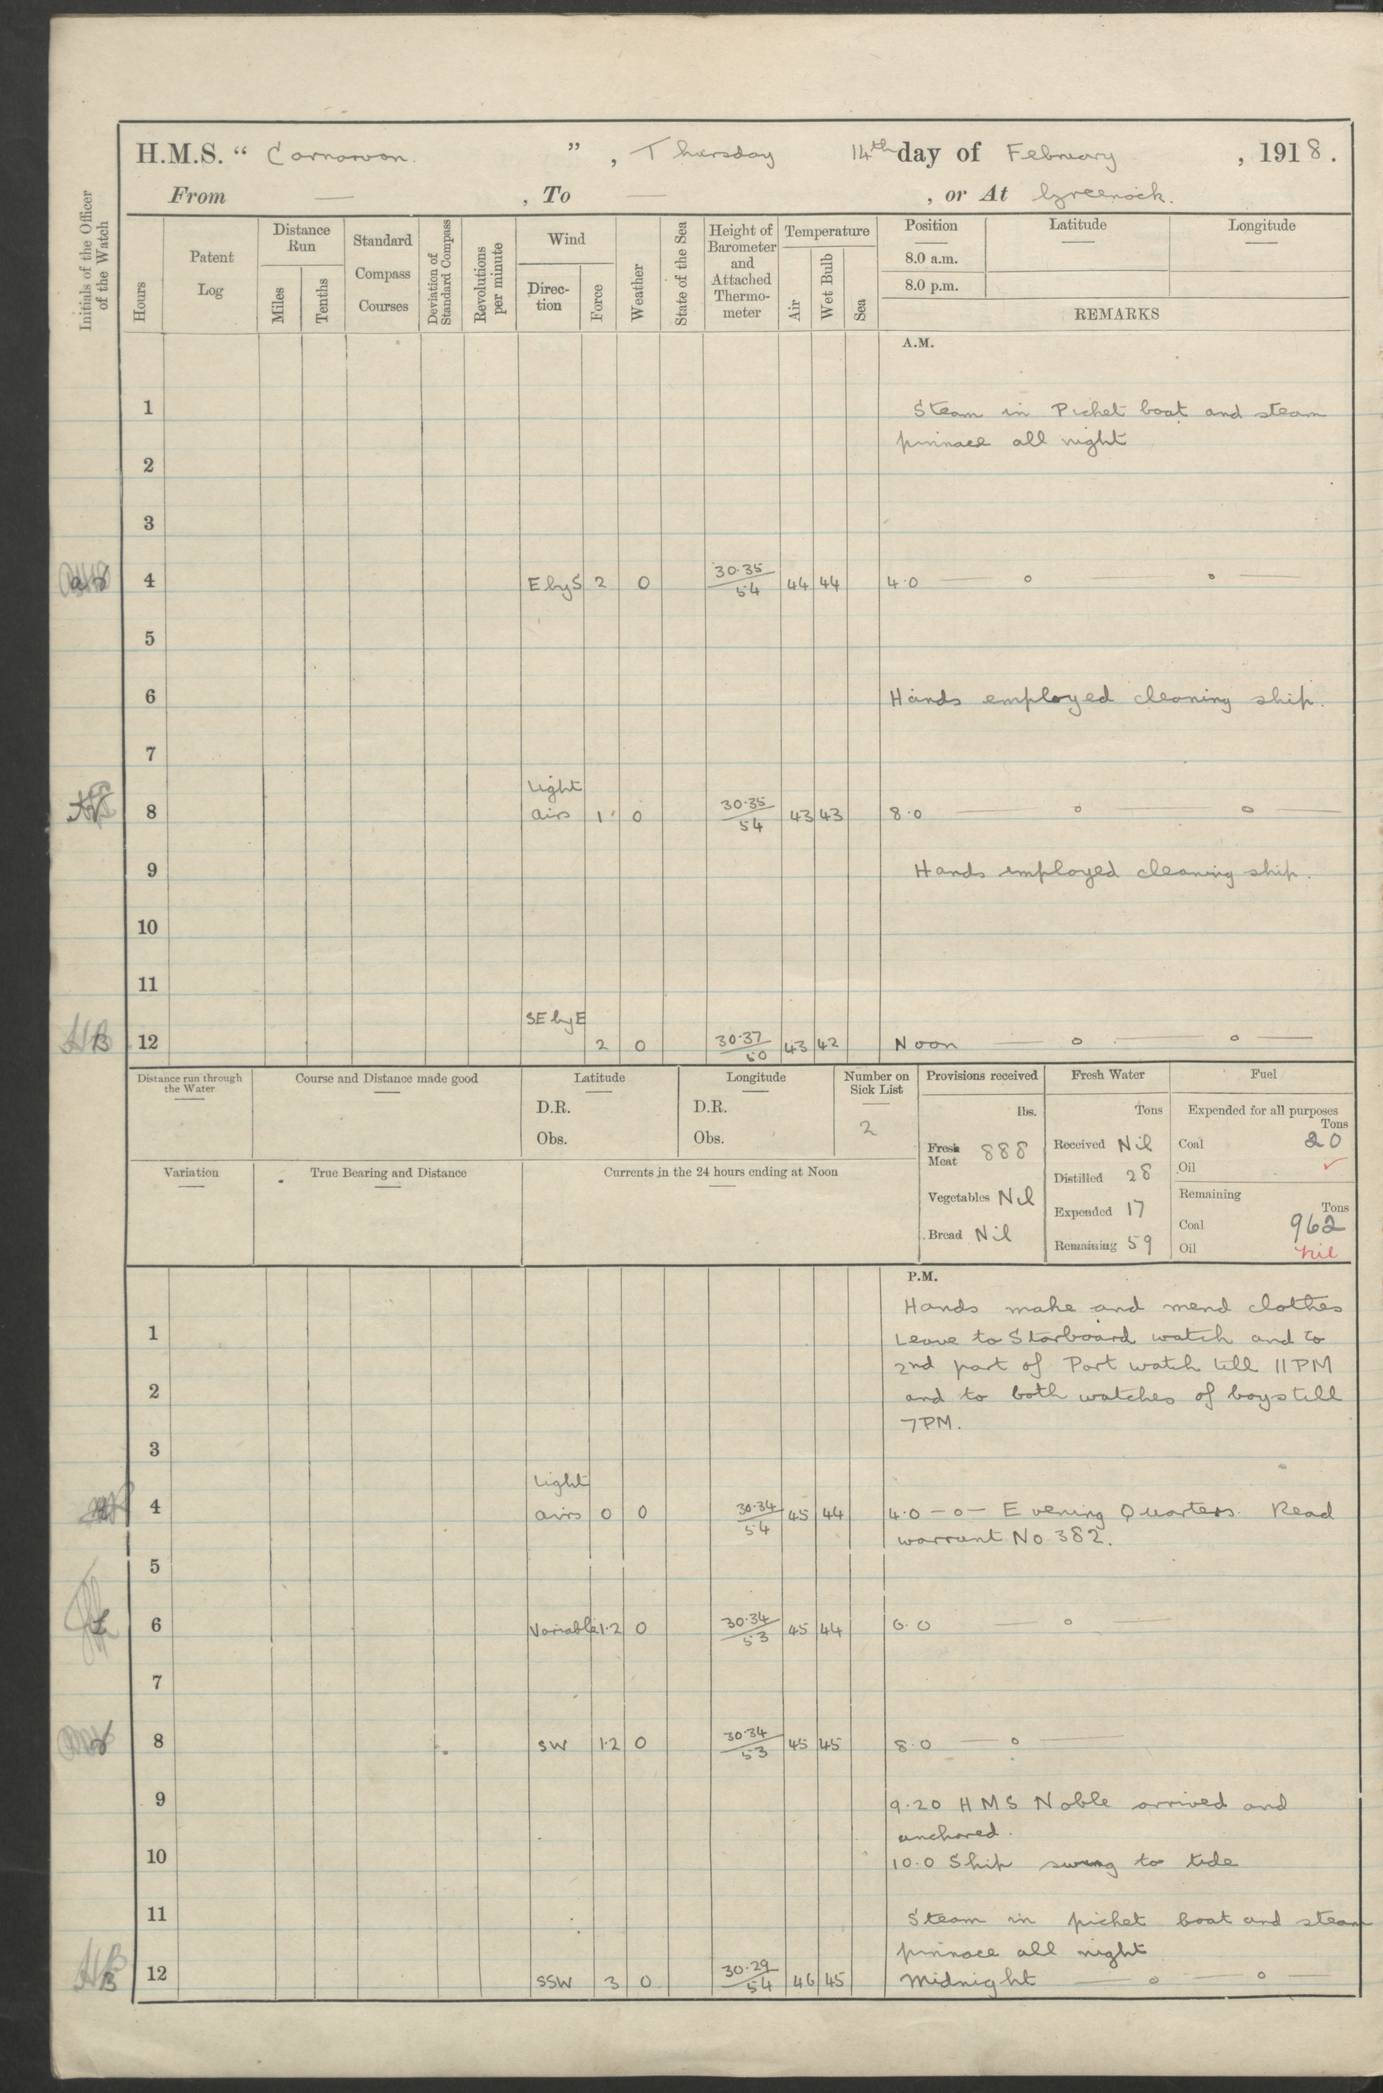 H.M.S. “ Carnarvon ” , Thursday 14th day of February , 1918.
From — , To — , or At Greenock.
Initials of the Officer of the Watch
Hours
Patent Log
Distance Run
Miles
Tenths
Standard Compass Courses
Deviation of Standard Compass
Revolutions per minute
Wind
Direc- tion
Force
Weather
State of the Sea
Height of Barometer and Attached Thermo- meter
Temperature
Air
Wet Bulb
Sea
Position
8.0 a.m.
8.0 p.m.
Latitude
Longitude
REMARKS
A.M.
1 Steam in Picket boat and steam
pinnace all night
2
3
4 E by S 2 0 30.35/54 44 44 4.0 — o — o —
5
6 Hands employed cleaning ship.
7
Light
8 airs 1 0 30.35/54 43 43 8.0 — o — o —
9 Hands employed cleaning ship.
10
11
SE by E
HB 12 2 0 30.37/50 43 42 Noon — o — o —
Distance run through the Water
Course and Distance made good
Latitude
D.R.
Obs.
Longitude
D.R.
Obs.
Number on Sick List
2
Variation
True Bearing and Distance
Currents in the 24 hours ending at Noon
Provisions received
lbs.
Fresh Meat 888
Vegetables Nil
Bread Nil
Fresh Water
Tons
Received Nil
Distilled 28
Expended 17
Remaining 59
Fuel
Expended for all purposes
Tons
Coal 20
Oil ✓
Remaining
Tons
Coal 962
Oil nil
P.M.
Hands make and mend clothes
1 Leave to Starboard watch and to
2nd part of Port watch till 11 PM
2 and to both watches of boys till
7 PM.
3
Light
4 airs 0 0 30.34/54 45 44 4.0 — o — Evening Quarters. Read
warrant No 382.
5
6 Variable 1.2 0 30.34/53 45 44 6.0 — o —
7
8 SW 1.2 0 30.34/53 45 45 8.0 — o —
9 9.20 HMS Noble arrived and
anchored.
10 10.0 Ship swung to tide
11 Steam in picket boat and steam
pinnace all night
HB 12 SSW 3 0 30.29/54 46 45 Midnight — o — o —